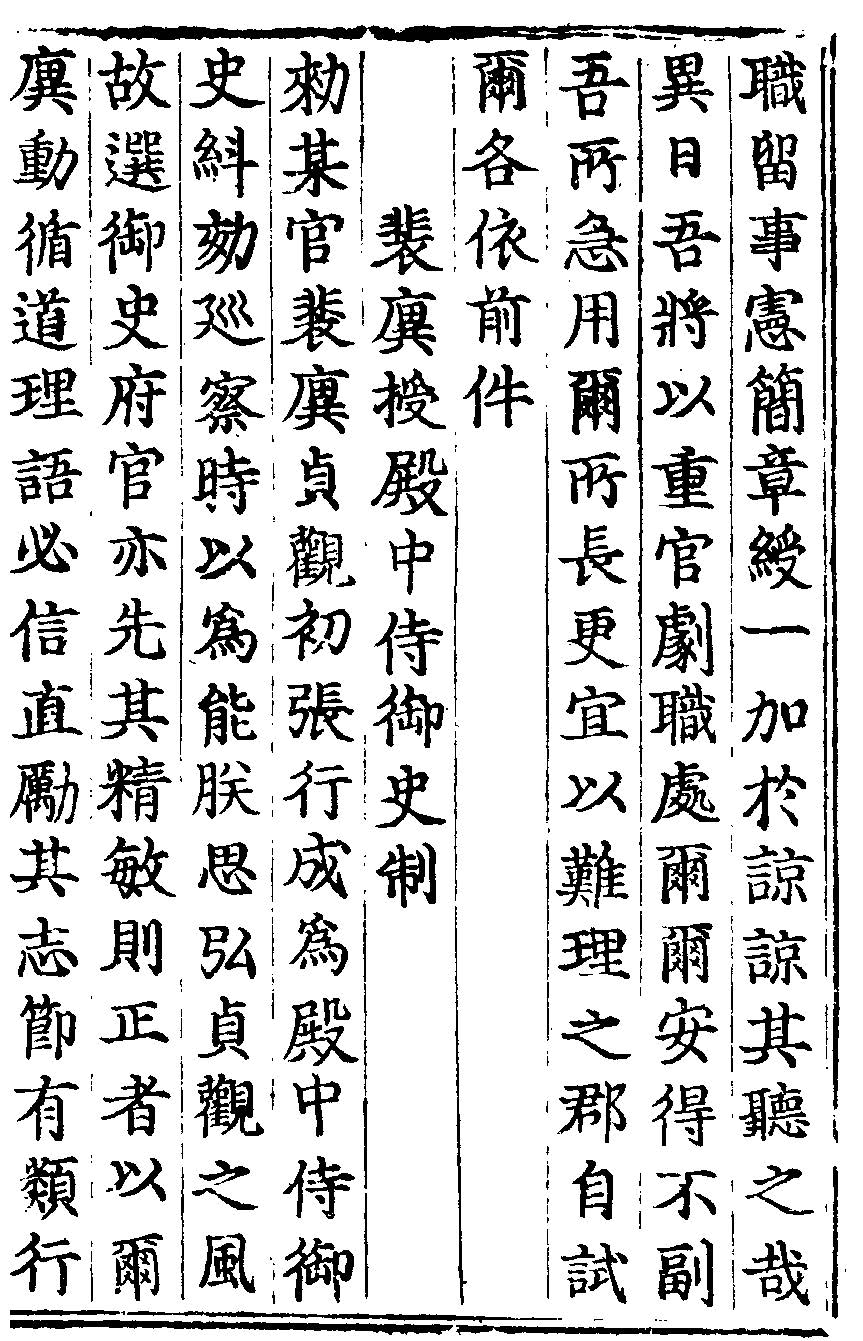 職留事憲簡章綬一加於諒諒其聽之哉
異日吾將以重官劇職處爾爾安得不副
吾所急用爾所長更宜以難理之郡自試
爾各依前件
裴廙授殿中侍御史制
勑某官裴廙貞觀初張行成為殿中侍御
史糾劾廵察時以為能朕思弘貞觀之風
故選御史府官亦先其精敏則正者以爾
廙動循道理語必信直勵其志節有類行